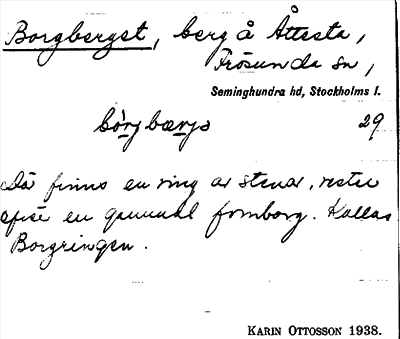 Borgberget, berg å Åttesta,
Frösunda sn,
Seminghundra hd, Stockholms l.
29
Där finns en ring av stenar, rester
efter en gammal fornborg. Kallas
Borgringen.
KARIN OTTOSSON 1938.